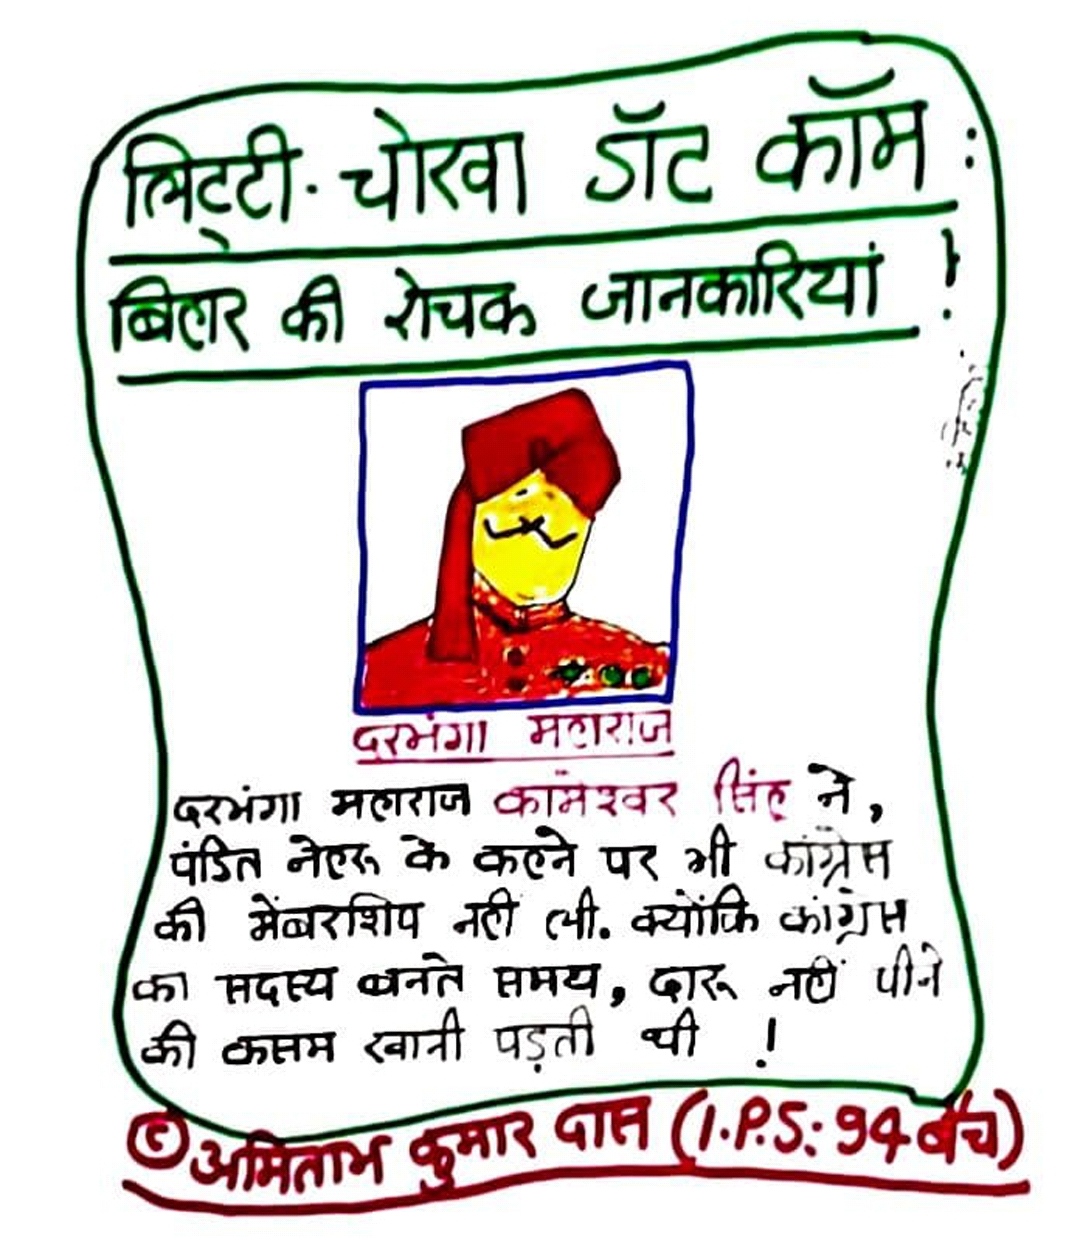 लिट्टी-चोखा डॉट कॉम :
बिहार की रोचक जानकारियां !
दरभंगा महाराज
दरभंगा महाराज कामेश्वर सिंह ने,
पंडित नेहरू के कहने पर भी कांग्रेस
की मेंबरशिप नहीं ली. क्योंकि कांग्रेस
का सदस्य बनते समय, दारू नहीं पीने
की कसम खानी पड़ती थी !
© अमिताभ कुमार दास (I.P.S: 94 बैच)